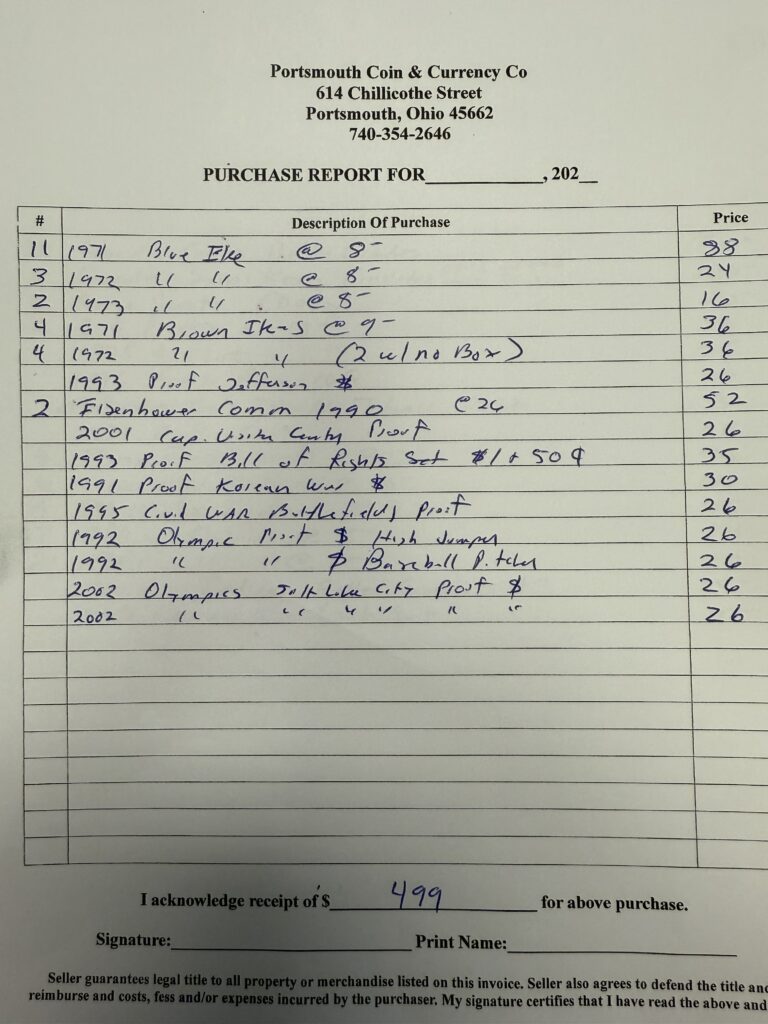 Portsmouth Coin & Currency Co
614 Chillicothe Street
Portsmouth, Ohio 45662
740-354-2646
PURCHASE REPORT FOR____________, 202__
# Description Of Purchase Price
11 1971 Blue Ike @ 8- 88
3 1972 " " @ 8- 24
2 1973 " " @ 8- 16
4 1971 Brown Ikes @ 9- 36
4 1972 " " (2 w/no Box) 36
1993 Proof Jefferson $ 26
2 Eisenhower Comm 1990 @26 52
2001 Cap. Visitor Proof 26
1993 Proof Bill of Rights Set $1 + 50¢ 35
1991 Proof Korean War $ 30
1995 Civil WAR Battlefields Proof 26
1992 Olympic Proof $ High Jumper 26
1992 " " $ Baseball Pitcher 26
2002 Olympics Salt Lake City Proof $ 26
2002 " " " " " " 26
I acknowledge receipt of $ 499 for above purchase.
Signature:____________ Print Name:____________
Seller guarantees legal title to all property or merchandise listed on this invoice. Seller also agrees to defend the title and
reimburse and costs, fess and/or expenses incurred by the purchaser. My signature certifies that I have read the above and